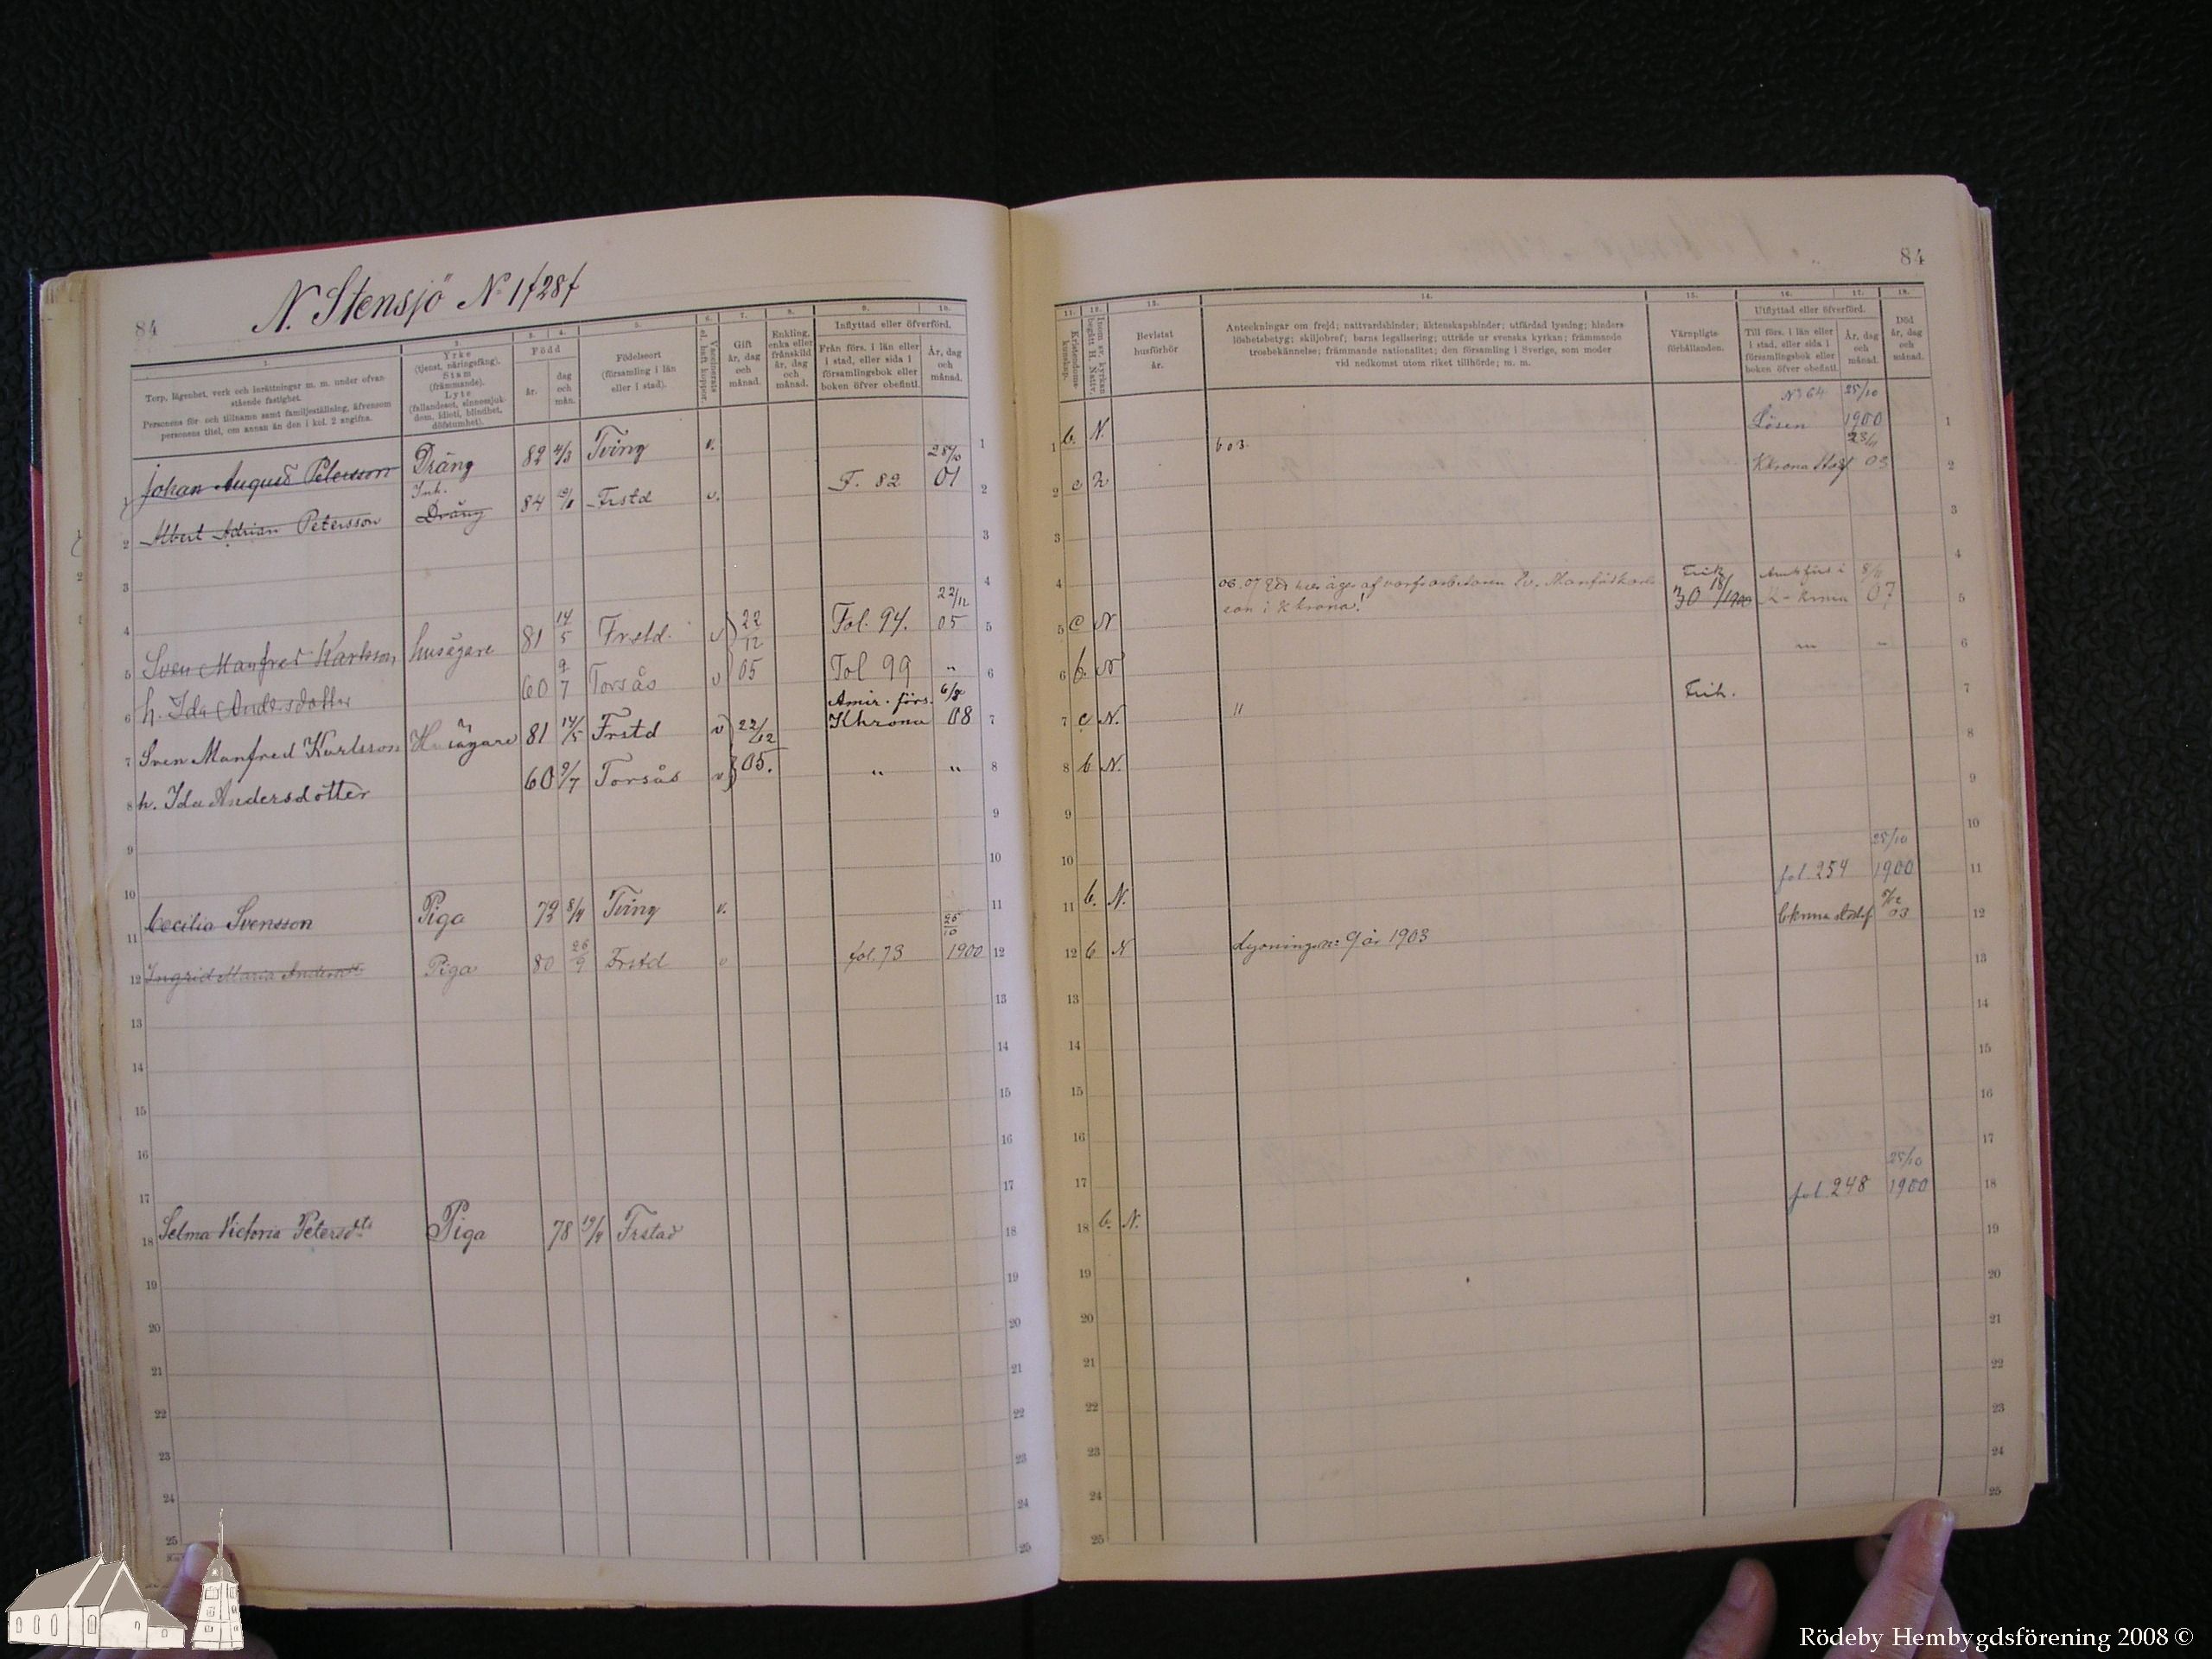 84
N. Stensjö No 1/28 f
1.
Torp, lägenhet, verk och inrättningar m. m. under ofvan-
stående fastighet.
Personens för och tillnamn samt familjeställning, äfvensom
personens titel, om annan än den i kol. 2 angifna.
2.
Yrke
(tjenst, näringsfång).
Stam
(främmande).
Lyte
(fallandesot, sinnessjuk-
dom, idioti, blindhet,
döfstumhet).
3. 4.
Född
år.
dag
och
mån.
5.
Födelseort
(församling i län
eller i stad).
6.
Vaccinerats
el. haft koppor.
7.
Gift
år, dag
och
månad.
8.
Enkling,
enka eller
frånskild
år, dag
och
månad.
9. 10.
Inflyttad eller öfverförd.
Från förs. i län eller
i stad, eller sida i
församlingsbok eller
boken öfver obefintl.
År, dag
och
månad.
1 Johan August Petersson Dräng 82 4/3 Tving v. 1
2 Albert Adrian Petersson Inh. Dräng 84 Frstd v. F. 82 01 2
3 3
4 4
5 Sven Manfred Karlsson husägare 81 14/5 Frstd. v 22/12 Fol. 94. 22/12 05 5
6 h. Ida Andersdotter 60 9/7 Torsås v 05 Fol 99 " 6
7 Sven Manfred Karlsson Husägare 81 14/5 Frstd v 22/12 Amir. förs. Kkrona 08 7
8 h. Ida Andersdotter 60 9/7 Torsås v 05. " " 8
9 9
10 10
11 Cecilia Svensson Piga 72 8/4 Tving v. 11
12 Ingrid Maria Piga 80 26/9 Frstd v fol. 73 25/10 1900 12
13 13
14 14
15 15
16 16
17 17
18 Selma Victoria Petersdtr Piga 78 19/4 Frstad 18
19 19
20 20
21 21
22 22
23 23
24 24
25 25
84
11.
Kristendoms-
kunskap.
12.
Inom sv. kyrkan
begått H. Nattv.
13.
Bevistat
husförhör
år.
14.
Anteckningar om frejd; nattvardshinder; äktenskapshinder; utfärdad lysning; hinders-
löshetsbetyg; skiljobref; barns legalisering; utträde ur svenska kyrkan; främmande
trosbekännelse; främmande nationalitet; den församling i Sverige, som moder
vid nedkomst utom riket tillhörde; m. m.
15.
Värnpligts-
förhållanden.
16. 17.
Utflyttad eller öfverförd.
Till förs. i län eller
i stad, eller sida i
församlingsbok eller
boken öfver obefintl.
År, dag
och
månad.
18.
Död
år, dag
och
månad.
1 b. N. No 64 Lösen 25/10 1900 1
2 c N 603. Kkrona Stadsf 03 2
3 3
4 4
5 c N 06. 07 äges af varfsarbetaren Sv. Manfred Karls-
son i Kkrona! Frik. 30 18/1900 K-krona 07 5
6 b. N 6
7 c N. " Frik. 7
8 b N. 8
9 9
10 10
11 b. N. fol. 254 25/10 1900 11
12 b N Lysning no 9 år 1903 03 12
13 13
14 14
15 15
16 16
17 17
18 b. N. fol. 248 25/10 1900 18
19 19
20 20
21 21
22 22
23 23
24 24
25 25
Rödeby Hembygdsförening 2008 ©